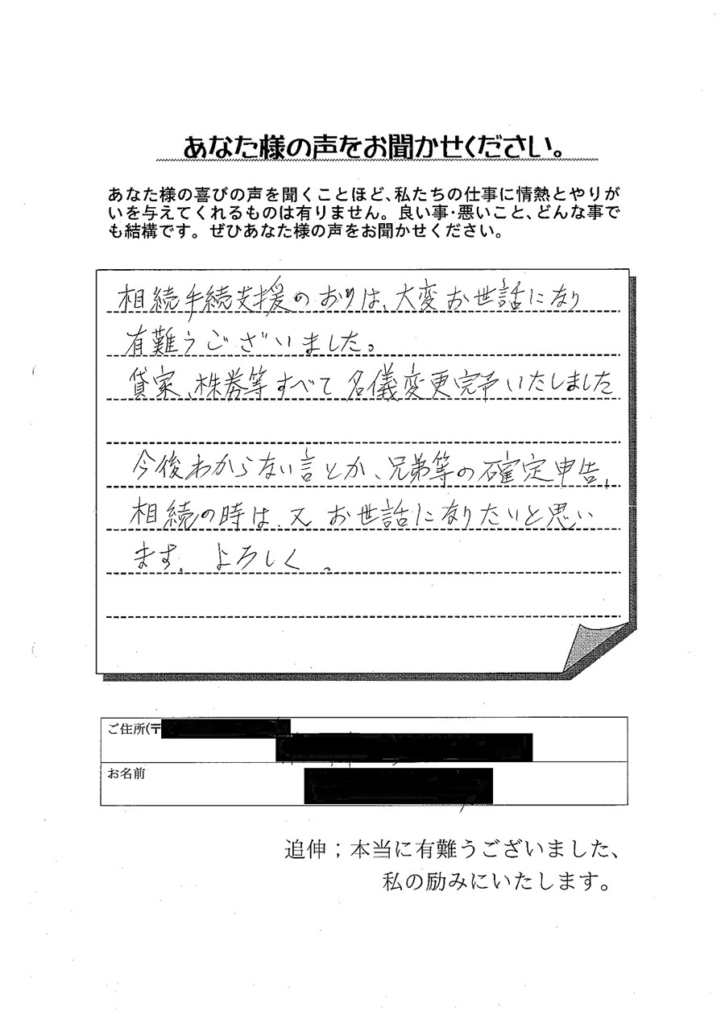 あなた様の声をお聞かせください。
あなた様の喜びの声を聞くことほど、私たちの仕事に情熱とやりが
いを与えてくれるものは有りません。良い事・悪いこと、どんな事で
も結構です。ぜひあなた様の声をお聞かせください。
相続手続支援のおりは、大変お世話になり
有難うございました。
貸家、株券等すべて名儀変更完予いたしました
今後わからない言とか、兄弟等の確定申告、
相続の時は、又お世話になりたいと思い
ます。よろしく。
ご住所(〒
お名前
追伸；本当に有難うございました、
私の励みにいたします。